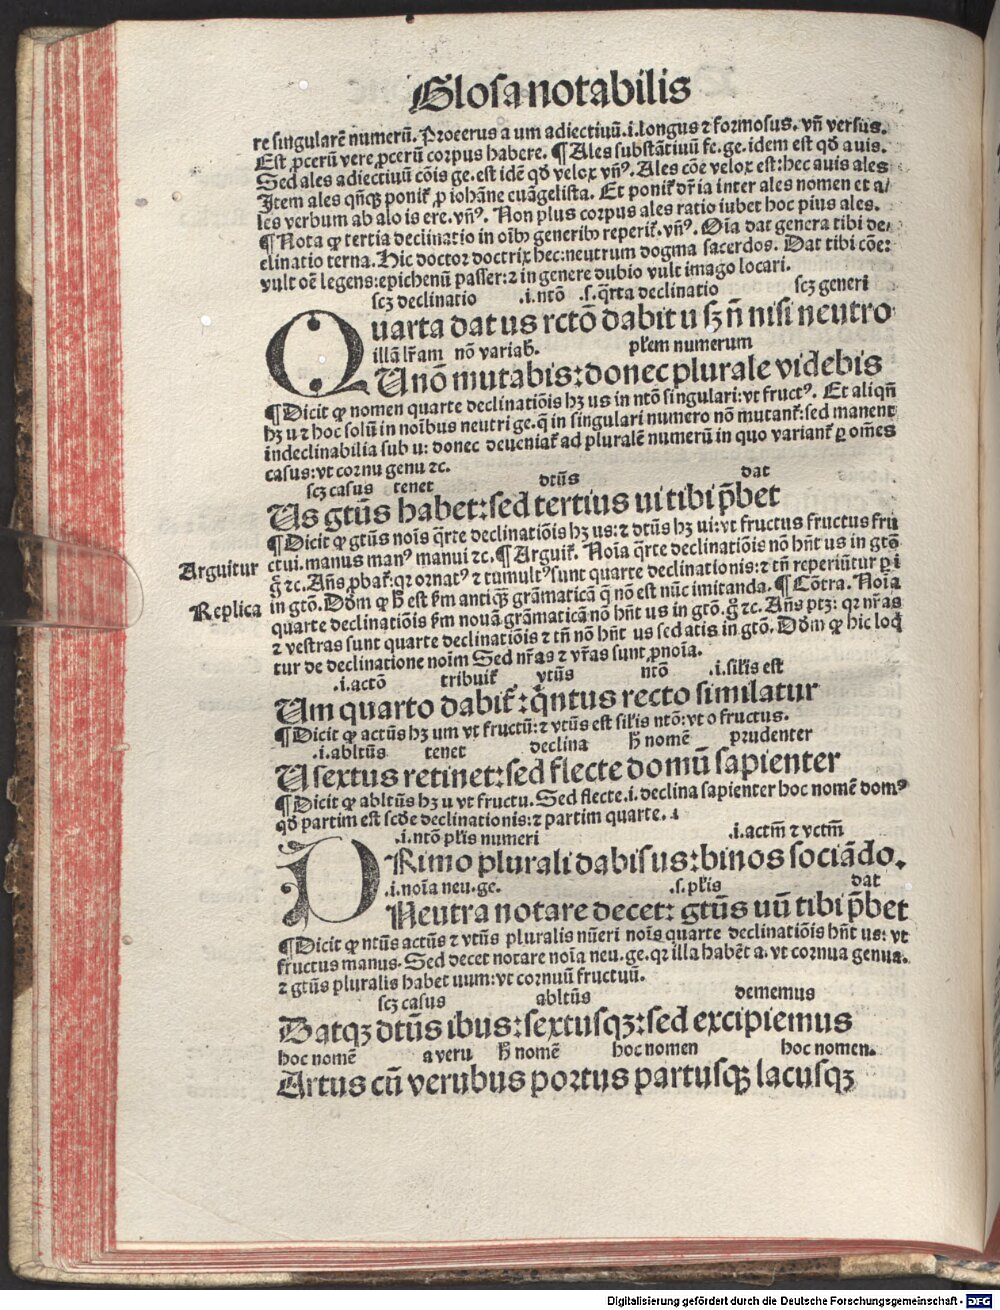 Glosa notabilis
re singularē numerū. Procerus a um adiectiuū .i. longus ⁊ formosus. vñ versus.
Est ꝓcerū vere ꝓcerū corpus habere. ¶ Ales substātiuū fe. ge. idem est qđ auis.
Sed ales adiectiuū cōis ge. est idē qđ velox vnꝰ. Ales cōe velox est: hec auis ales
Item ales qñꝙ ponit᷑ ꝓ iohāne euāgelista. Et ponit᷑ dr̄ia inter ales nomen et a/
les verbum ab alo is ere. vnꝰ. Non plus corpus ales ratio iubet hoc pius ales.
¶ Nota ꝙ tertia declinatio in oībꝰ generibꝰ reperit᷑. vnꝰ. Oīa dat genera tibi de/
clinatio terna. Hic doctor doctrix hec: neutrum dogma sacerdos. Dat tibi cōe:
vult oē legens: epichenū passer: ⁊ in genere dubio vult imago locari.
scꝫ declinatio .i. ntō .s. q̄rta declinatio scꝫ generi
Quarta dat us rctō dabit u sꝫ n̄ nisi neutro
illā lr̄am nō variab̄. pl̄em numerum
U nō mutabis: donec plurale videbis
¶ Dicit ꝙ nomen quarte declinatiōis hꝫ us in ntō singulari: vt fructꝰ. Et aliqñ
hꝫ u ⁊ hoc solū in noībus neutri ge. q̄ in singulari numero nō mutant᷑: sed manent
indeclinabilia sub u: donec deueniat᷑ ad pluralē numerū in quo variant᷑ ꝑ om̄es
casus: vt cornu genu ⁊c.
scꝫ casus tenet dtūs dat
Us gtūs habet: sed tertius ui tibi p̄bet
¶ Dicit ꝙ gtūs nois q̄rte declinatiōis hꝫ us: ⁊ dtūs hꝫ ui: vt fructus fructus fru
ctui. manus manꝰ manui ⁊c. ¶ Arguit᷑. Noīa q̄rte declinatiōis nō hn̄t us in gtō
Arguitur
g̊ ⁊c. Añs ꝓbat᷑: qꝛ ornatꝰ ⁊ tumultꝰ sunt quarte declinationis: ⁊ tn̄ reperiūtur ꝑ i
in gtō. Dōm ꝙ h̄ est ẜm antiqūs grāmaticā q̄ nō est nūc imitanda. ¶ Cōtra. Noīa
Replica
quarte declinatiōis ẜm nouā grāmaticā nō hn̄t us in gtō. g̊ ⁊c. Añs ptꝫ: qꝛ nr̄as
⁊ vestras sunt quarte declinatiōis ⁊ tn̄ nō hn̄t us sed atis in gtō. Dōm ꝙ hic loq̄
tur de declinatione noīm Sed nr̄as ⁊ vr̄as sunt ꝓnoīa.
.i. actō tribuit᷑ vtūs ntō .i. sil̄is est
Um quarto dabit᷑: q̄ntus recto similatur
¶ Dicit ꝙ actūs hꝫ um vt fructū: ⁊ vtūs est sil̄is ntō: vt o fructus.
.i. abltūs tenet declina h̄ nomē prudenter
U sextus retinet: sed flecte domū sapienter
¶ Dicit ꝙ abltūs hꝫ u vt fructu. Sed flecte .i. declina sapienter hoc nomē domꝰ
qđ partim est scđe declinationis: ⁊ partim quarte.
.i. ntō pl̄is numeri .i. actm̄ ⁊ vctm̄
PRimo plurali dabis us: binos sociādo.
.i. noīa neu. ge. .s. pl̄is dat
Neutra notare decet: gtūs uū tibi p̄bet
¶ Dicit ꝙ ntūs actūs ⁊ vtūs pluralis nūeri nois quarte declinatiōis hn̄t us: vt
fructus manus. Sed decet notare noīa neu. ge. qꝛ illa habēt a. vt cornua genua.
⁊ gtūs pluralis habet uum: vt cornuū fructuū.
scꝫ casus abltūs dememus
Datqꝫ dtūs ibus: sextusqꝫ: sed excipiemus
hoc nomē a veru h̄ nomē hoc nomen hoc nomen.
Artus cū verubus portus partusqꝫ lacusqꝫ
Digitalisierung gefördert durch die Deutsche Forschungsgemeinschaft - DFG